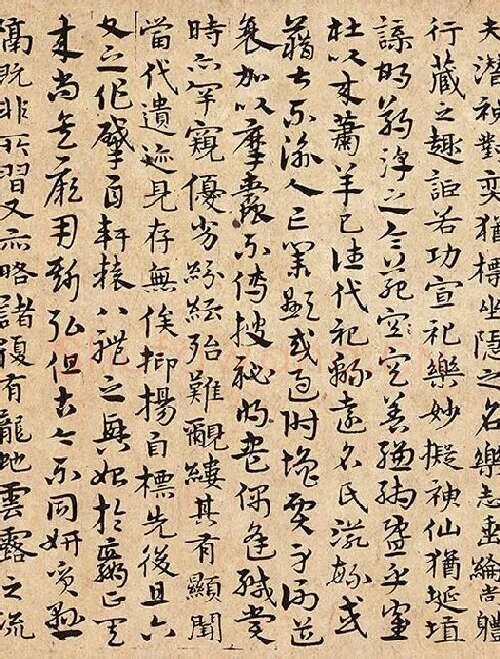 夫潛神對奕猶標坐隱之名樂志垂綸尚體
行藏之趣詎若功宣祀樂妙擬神仙猶埏埴
諜邯鄲淳之令範空著縑緗暨乎崔
杜以來蕭羊已往代祀緜遠名氏滋繁或
藉甚不渝人亡業顯或憑附增價身謝道
衰加以糜蠹不傳搜祕將盡偶逢緘賞
時亦罕窺優劣紛紜殆難覼縷其有顯聞
當代遺迹見存無俟抑揚自標先後且六
文之作肇自軒轅八體之興始於嬴正其
來尚矣厥用斯弘但古今不同妍質懸
隔既非所習又亦略諸復有龍虵雲露之流